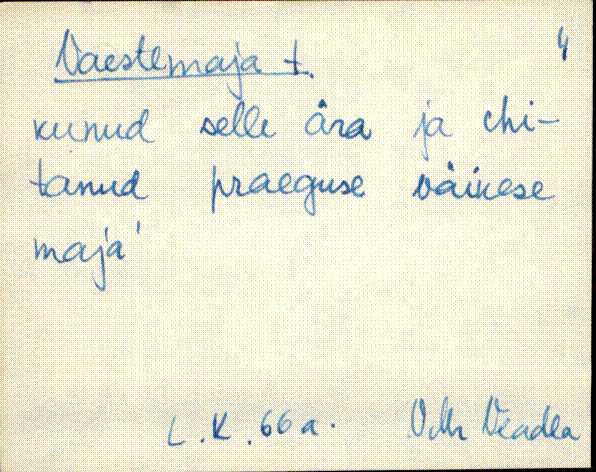 Vaestemaja t. 4
kunud selle ära ja ehi-
tanud praeguse väikese
maja'
L.K. 66 a.